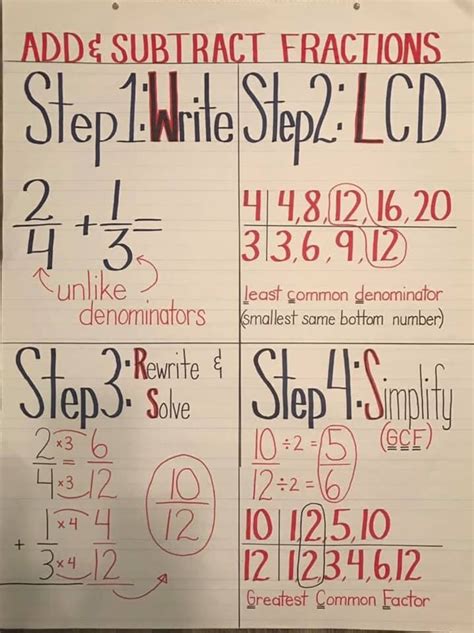 ADD & SUBTRACT FRACTIONS
Step 1: Write
2/4 + 1/3 =
unlike
denominators
Step 2: LCD
4 | 4, 8, 12, 16, 20
3 | 3, 6, 9, 12
least common denominator
(smallest same bottom number)
Step 3: Rewrite &
Solve
2 ×3 6
4 ×3 12
1 ×4 4
+
3 ×4 12
10
12
Step 4: Simplify
(GCF)
10 ÷2 = 5
12 ÷2 = 6
10 | 1, 2, 5, 10
12 | 1, 2, 3, 4, 6, 12
Greatest Common Factor